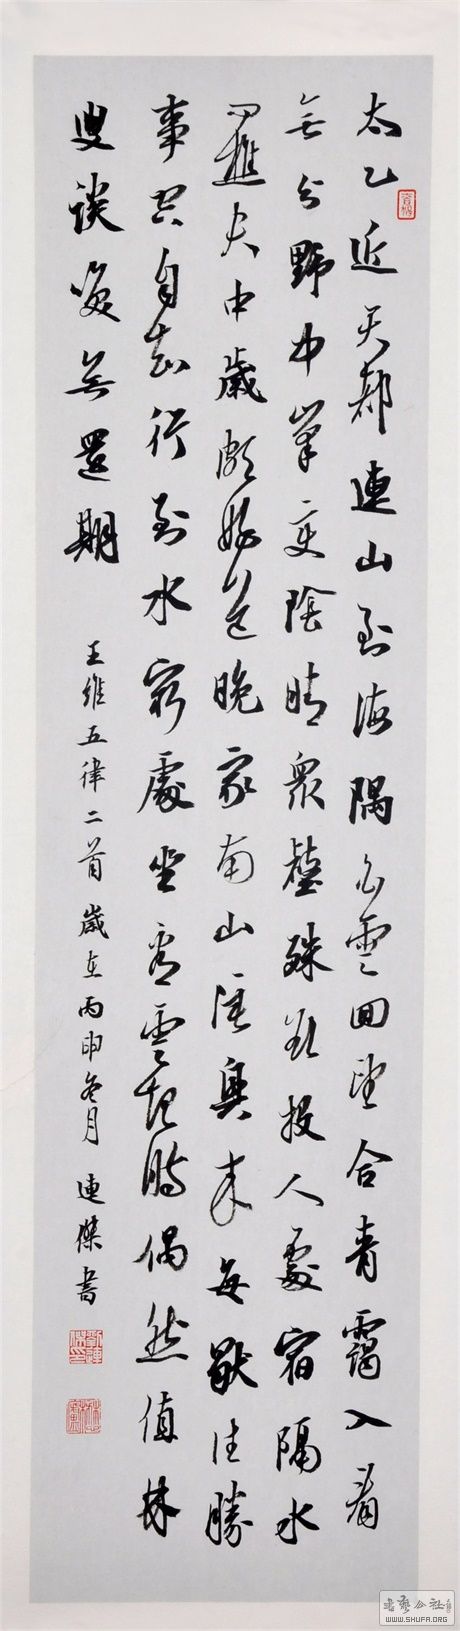 太乙近天都連山到海隅白雲回望合青靄入看
無分野中峯變陰晴衆壑殊欲投人處宿隔水
問樵夫中歲頗好道晚家南山陲興來每獨往勝
事空自知行到水窮處坐看雲起時偶然值林
叟談笑無還期
王維五律二首歲在丙申冬月連傑書
WWW.SHUFA.ORG